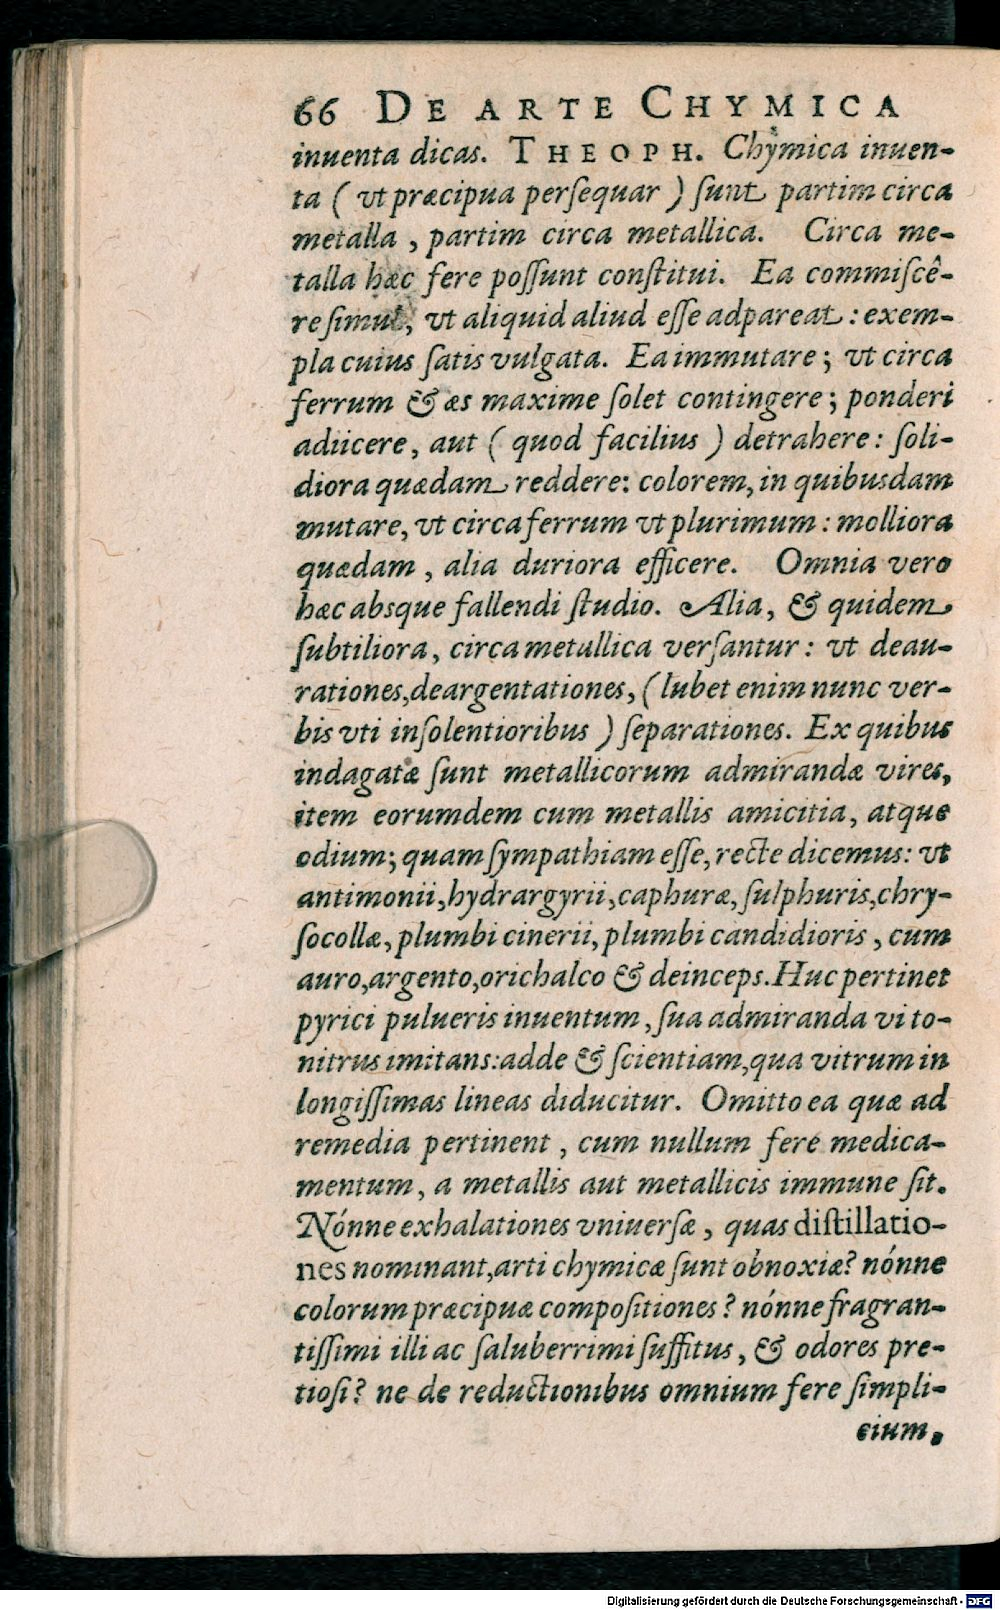 66 DE ARTE CHYMICA
inuenta dicas. THEOPH. Chymica inuen-
ta ( vt præcipua perſequar ) ſunt partim circa
metalla , partim circa metallica. Circa me-
talla hæc fere poſſunt conſtitui. Ea commiſcê-
re ſimul, vt aliquid aliud eſſe adpareat : exem-
pla cuius ſatis vulgata. Ea immutare ; vt circa
ferrum & æs maxime ſolet contingere ; ponderi
adiicere, aut ( quod facilius ) detrahere : ſoli-
diora quædam reddere: colorem, in quibusdam
mutare, vt circa ferrum vt plurimum : molliora
quædam , alia duriora efficere. Omnia vero
hæc absque fallendi ſtudio. Alia, & quidem
ſubtiliora, circa metallica verſantur : vt deau-
rationes,deargentationes, ( lubet enim nunc ver-
bis vti inſolentioribus ) ſeparationes. Ex quibus
indagatæ ſunt metallicorum admirandæ vires,
item eorumdem cum metallis amicitia, atque
odium; quam ſympathiam eſſe, recte dicemus: vt
antimonii,hydrargyrii,caphuræ, ſulphuris,chry-
ſocollæ, plumbi cinerii, plumbi candidioris , cum
auro,argento,orichalco & deinceps. Huc pertinet
pyrici pulueris inuentum , ſua admiranda vi to-
nitrus imitans:adde & ſcientiam,qua vitrum in
longiſſimas lineas diducitur. Omitto ea quæ ad
remedia pertinent , cum nullum fere medica-
mentum, a metallis aut metallicis immune ſit.
Nónne exhalationes vniuerſæ , quas diſtillatio-
nes nominant,arti chymicæ ſunt obnoxiæ? nónne
colorum præcipuæ compoſitiones ? nónne fragran-
tiſſimi illi ac ſaluberrimi ſuffitus, & odores pre-
tioſi? ne de reductionibus omnium fere ſimpli-
cium,
Digitalisierung gefördert durch die Deutsche Forschungsgemeinschaft - DFG